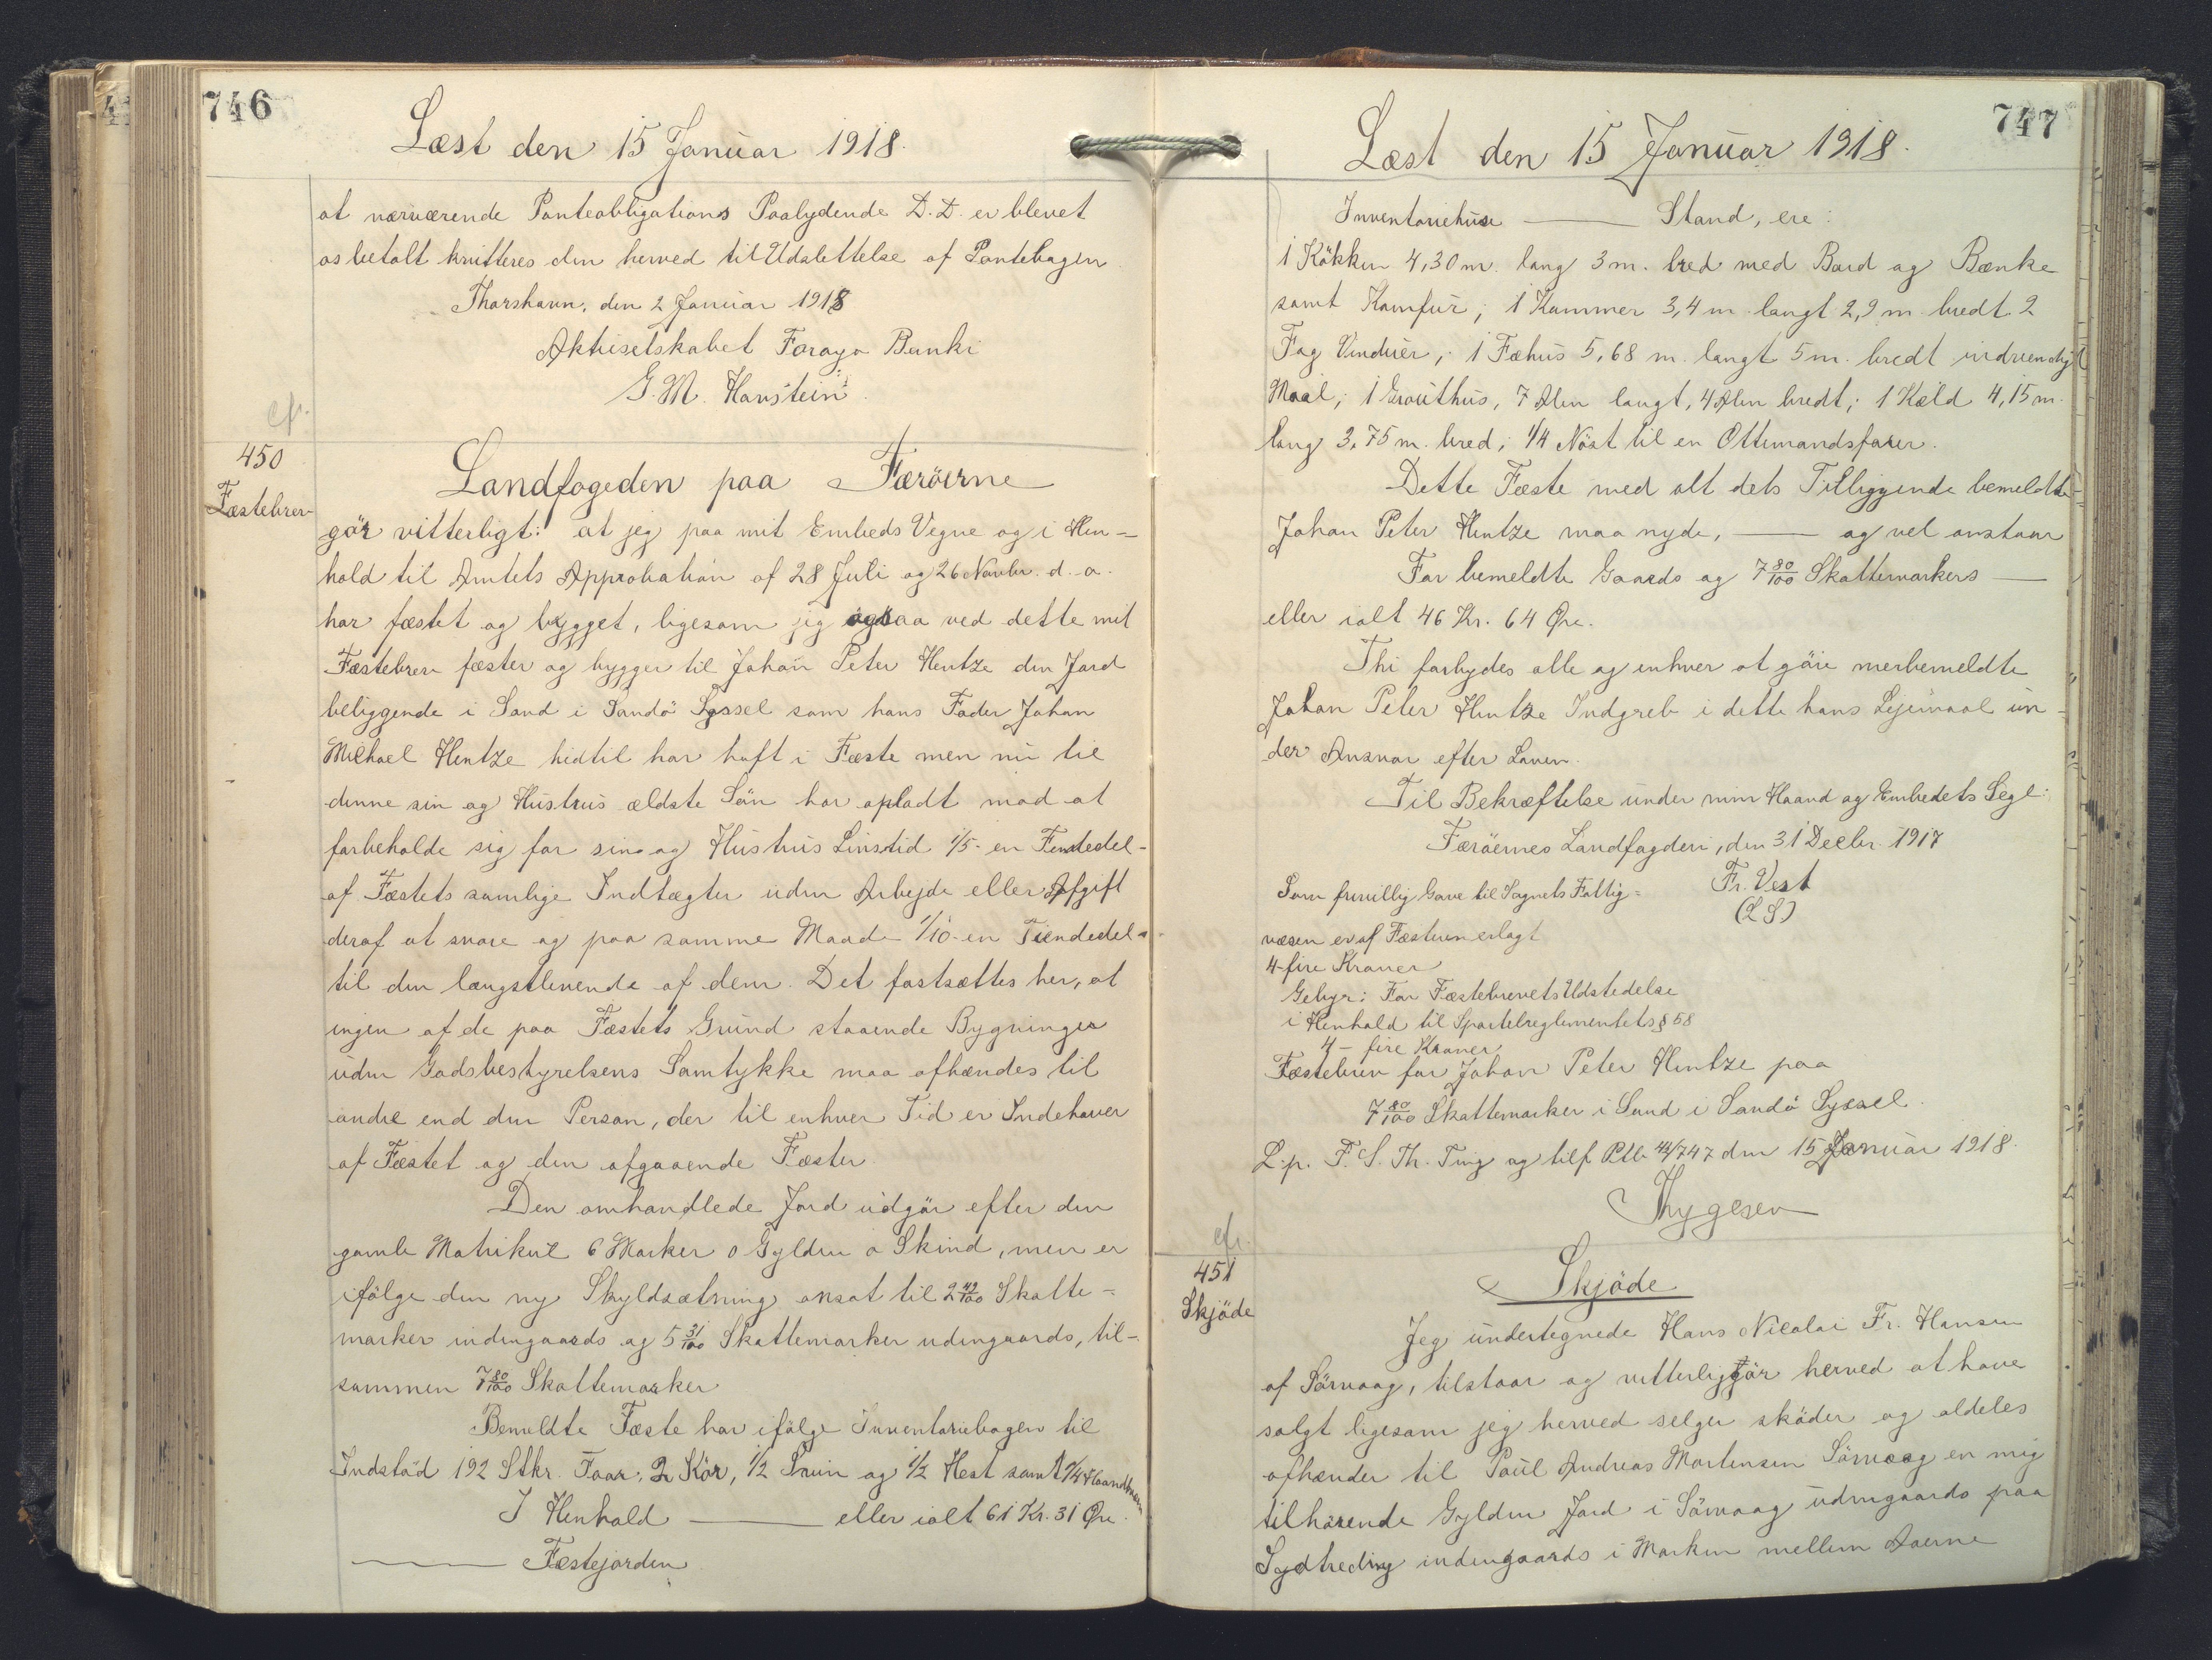 746
Læst den 15 Januar 1918.
at nærværende Panteobligations Paalydende D. D. er blevet
os betalt kvitteres den herved til Udslettelse af Pantebogen
Thorshavn, den 2 Januar 1918
Aktieselskabet Føroya Banki
G. M. Hanstein
cfr.
450
Fæstebrev
Landfogeden paa Færöerne
gör vitterligt: at jeg paa mit Embeds Vegne og i Hen=
hold til Amtets Approbation af 28 Juli og 26 Novbr. d. a.
har fæstet og bygget, ligesom jeg ogsaa ved dette mit
Fæstebrev fæster og bygger til Johan Peter Hentze den Jord
beliggende i Sand i Sandö Syssel som hans Fader Johan
Michael Hentze hidtil har haft i Fæste men nu til
denne sin og Hustrus ældste Sön har opladt mod at
forbeholde sig for sin og Hustrus Livstid 1/5 - en Femtedel -
af Fæstets samlige Indtægter uden Arbejde eller Afgift
deraf at svare og paa samme Maade 1/10 - en Tiendedel -
til den længstlevende af dem. Det fastsættes her, at
ingen af de paa Fæstets Grund staaende Bygninger
uden Godsbestyrelsens Samtykke maa afhændes til
andre end den Person, der til enhver Tid er Indehaver
af Fæstet og den afgaaende Fæster.
Den omhandlede Jord udgör efter den
gamle Matrikul 6 Marker 0 Gylden 0 Skind, men er
ifölge den ny Skyldsætning ansat til 2 49/100 Skatte=
marker indengaards og 5 31/100 Skattemarker udengaards, til-
sammen 7 80/100 Skattemarker
Bemeldte Fæste har ifölge Inventariebogen til
Indstöd 192 Stkr. Faar, 2 Kör, 1/2 Svin og 1/2 Hest samt
I Henhold ——— eller ialt 61 Kr. 31 Øre.
——— Fæstejorden
747
Læst den 15 Januar 1918.
Inventariehuse ——— Stand, ere:
1 Kökken 4,30 m. lang 3 m. bred med Bord og Bænke
samt Komfur; 1 Kammer 3,4 m langt 2,9 m bredt 2
Fag Vinduer; 1 Fæhus 5,68 m. langt 5 m. bredt indvendigt
Maal; 1 Grouthus, 7 Alen langt, 4 Alen bredt; 1 Kæld 4,15 m.
lang 3,75 m. bred; 1/4 Nöst til en Ottemandsfarer.
Dette Fæste med alt dets Tilliggende bemeldte
Johan Peter Hentze maa nyde, ——— og vel anstaar
For bemeldte Gaards og 7 80/100 Skattemarkers ———
eller ialt 46 Kr. 64 Øre.
Thi forbydes alle og enhver at göre merbemeldte
Johan Peter Hentze Indgreb i dette hans Lejemaal un-
der Ansvar efter Loven.
Til Bekræftelse under min Haand og Embedets Segl:
Færöernes Landfogderi, den 31 Decbr. 1917
Fr. Vest
(L S)
Som frivillig Gave til Sognets Fattig=
væsen er af Fæsteren erlagt
4 - fire Kroner
Gebyr: For Fæstebrevets Udstedelse
i Henhold til Sportelreglementets § 58
4 - fire Kroner
Fæstebrev for Johan Peter Hentze paa
7 80/100 Skattemarker i Sand i Sandö Syssel.
L. p. F. S. Th. Ting og tilf Ptb 44/747 den 15 Januar 1918.
Thygesen
cfr.
451
Skjöde
Skjöde
Jeg undertegnede Hans Nicolai Fr. Hansen
af Sörvaag, tilstaar og vitterliggör herved at have
solgt ligesom jeg herved selger sköder og aldeles
afhænder til Poul Andreas Mortensen Sörvaag en mig
tilhörende Gylden Jord i Sörvaag udengaards paa
Sydtreding indengaards i Marken mellem Aaerne